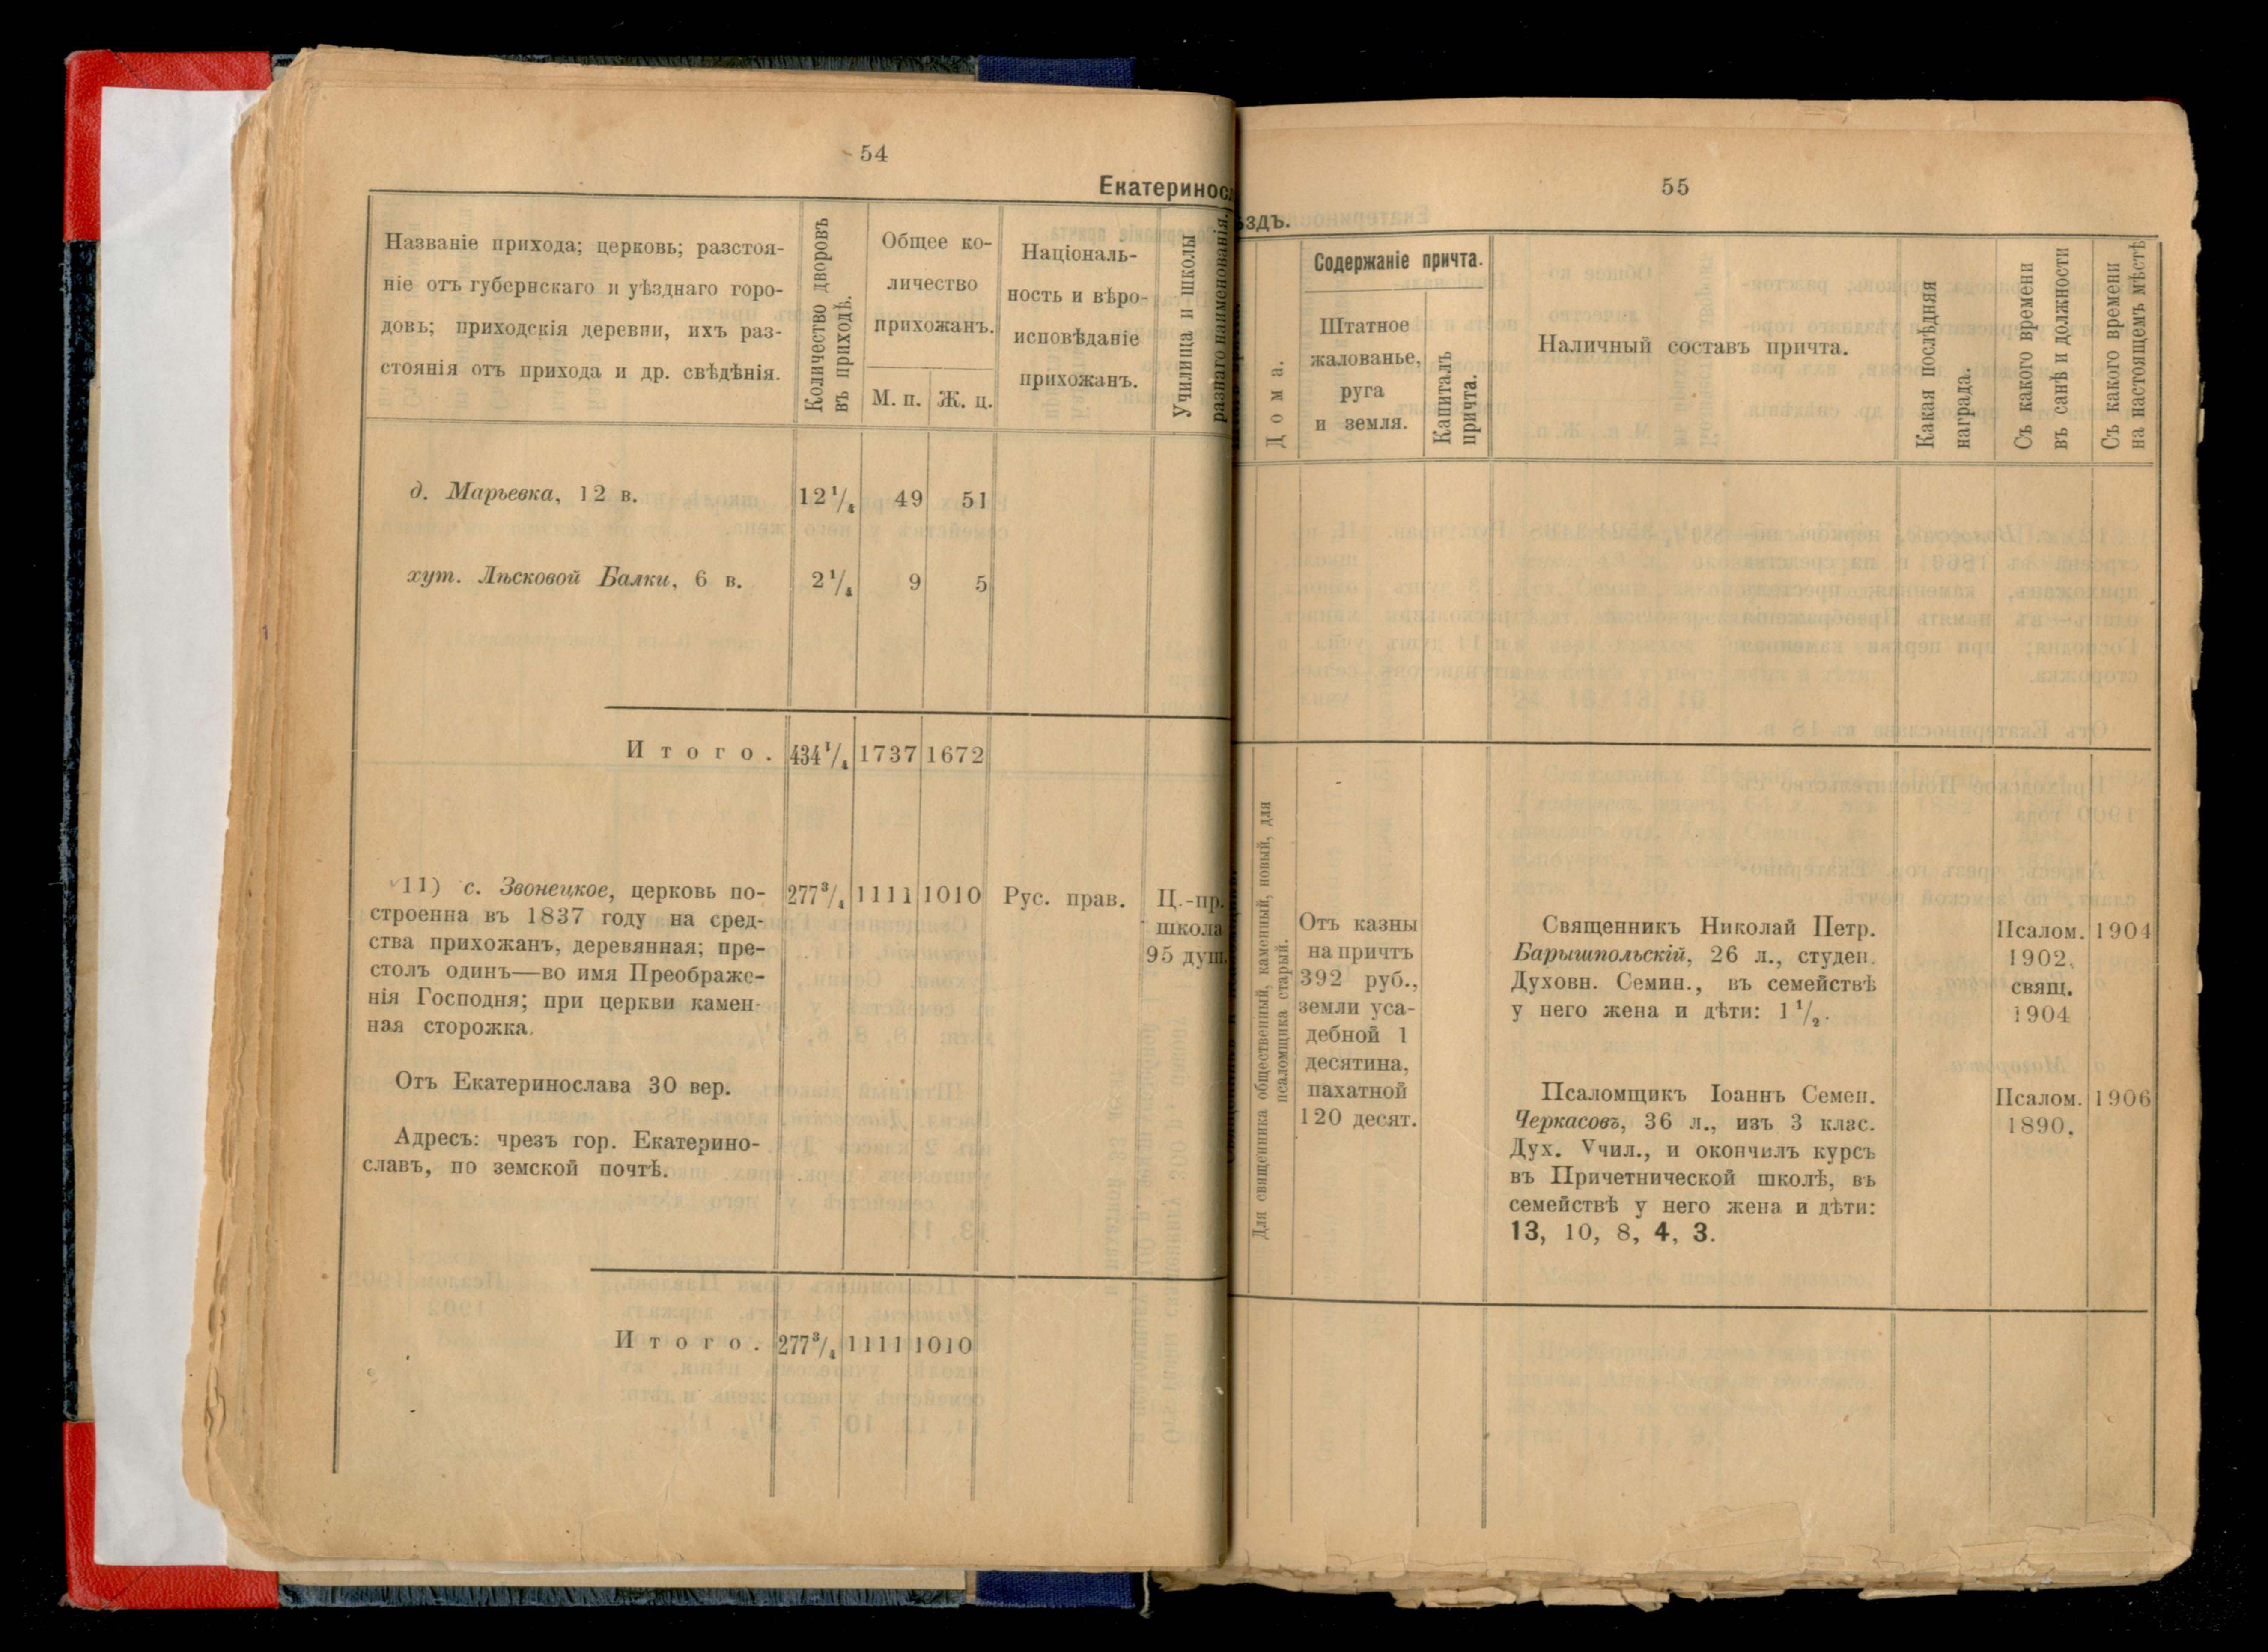 54
Екатеринос
Названіе прихода; церковь; разстоя-
ніе отъ губернскаго и уѣзднаго горо-
довъ; приходскія деревни, ихъ раз-
стоянія отъ прихода и др. свѣдѣнія.
Количество дворовъ
въ приходѣ.
Общее ко-
личество
прихожанъ.
М. п. Ж. п.
Націоналъ-
ность и вѣро-
исповѣданіе
прихожанъ.
Училища и школы
разнаго наименованія.
д. Марьевка, 12 в. 12 1/4 49 51
хут. Лѣсковой Балки, 6 в. 2 1/4 9 5
Итого. 434 1/4 1737 1672
11) с. Звонецкое, церковь по- 277 3/4 1111 1010 Рус. прав. Ц.-пр.
строенна въ 1837 году на сред- школа
ства прихожанъ, деревянная; пре- 95 душ.
столъ одинъ—во имя Преображе-
нія Господня; при церкви камен-
ная сторожка.
Отъ Екатеринослава 30 вер.
Адресъ: чрезъ гор. Екатерино-
славъ, по земской почтѣ.
Итого. 277 3/4 1111 1010
55
ѣздъ.
Дома.
Содержаніе причта.
Штатное
жалованье,
руга
и земля.
Капиталъ
причта.
Наличный составъ причта.
Какая послѣдняя
награда.
Съ какого времени
въ санѣ и должности
Съ какого времени
на настоящемъ мѣстѣ
Для священника общественный, каменный, новый, для
псаломщика старый.
Отъ казны
на причтъ
392 руб.,
земли уса-
дебной 1
десятина,
пахатной
120 десят.
Священникъ Николай Петр. Псалом. 1904
Барышпольскій, 26 л., студен. 1902,
Духовн. Семин., въ семействѣ свящ.
у него жена и дѣти: 1 1/2. 1904
Псаломщикъ Іоаннъ Семен. Псалом. 1906
Черкасовъ, 36 л., изъ 3 клас. 1890.
Дух. Учил., и окончилъ курсъ
въ Причетнической школѣ, въ
семействѣ у него жена и дѣти:
13, 10, 8, 4, 3.